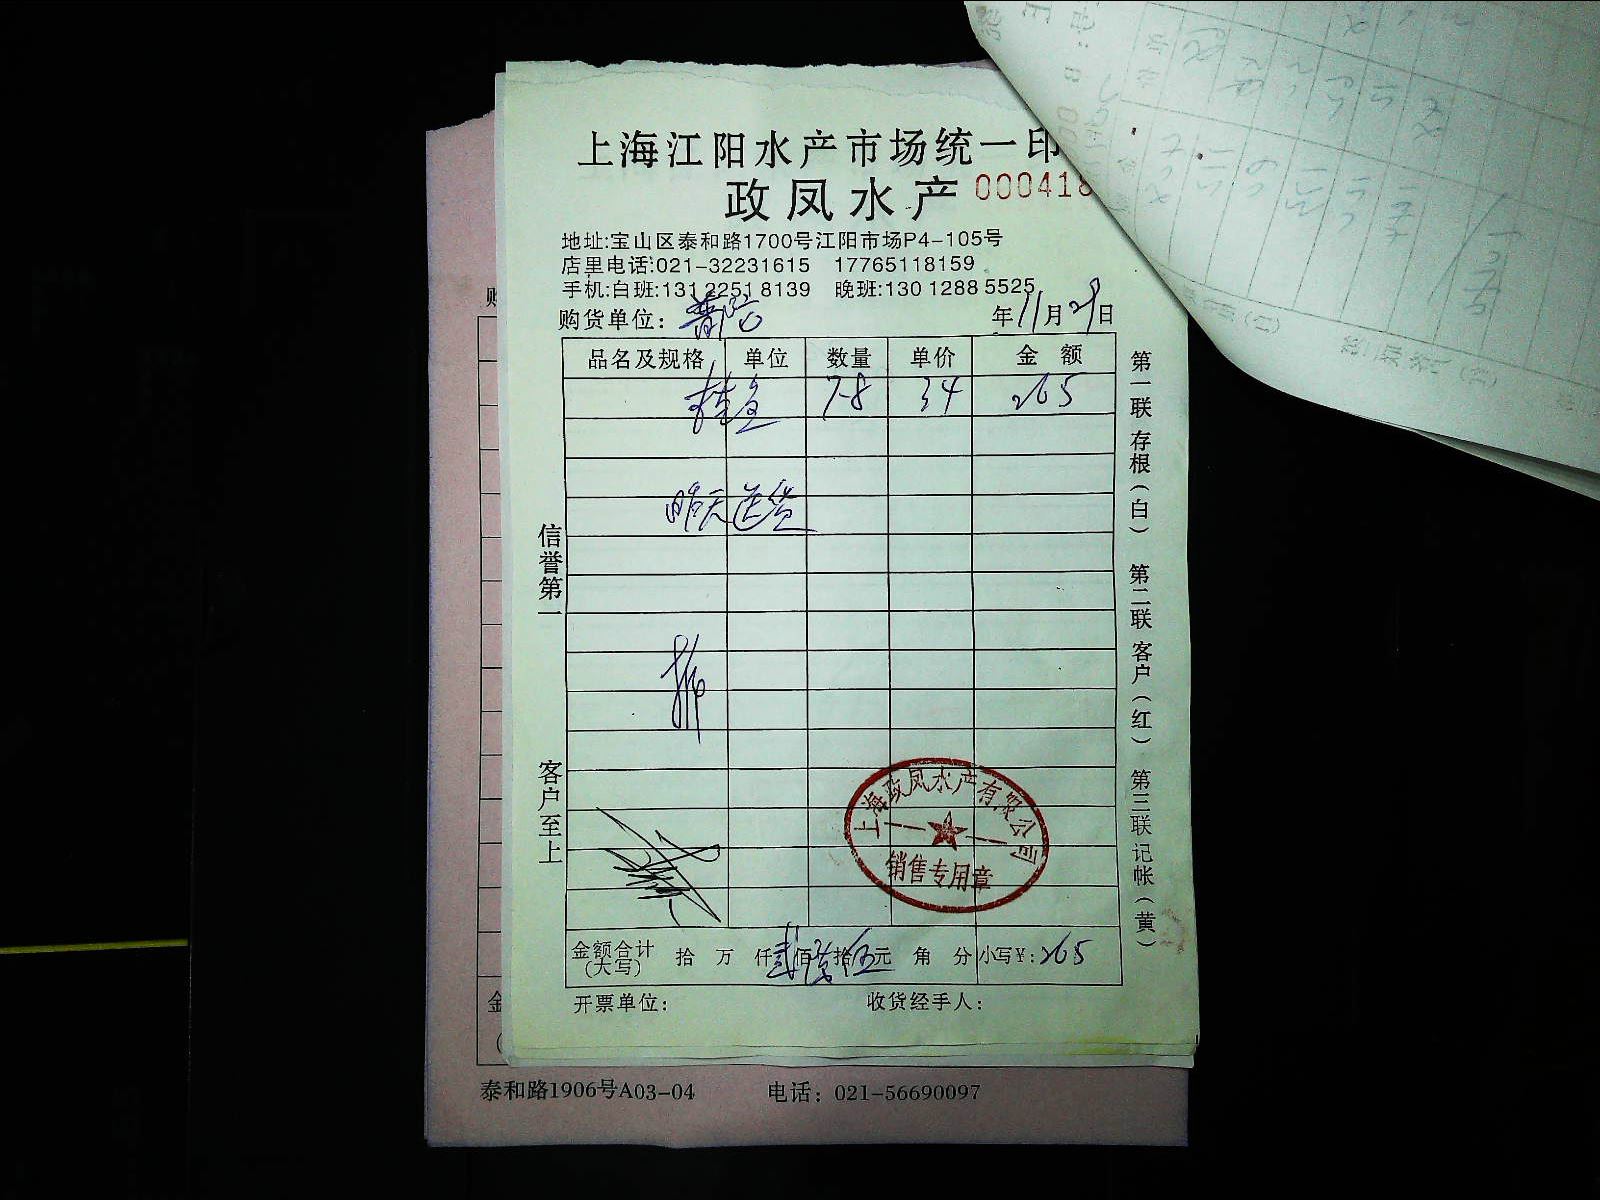 上海江阳水产市场统一印
政凤水产 000418
地址:宝山区泰和路1700号江阳市场P4-105号
店里电话:021-32231615 17765118159
手机:白班:131 2251 8139 晚班:130 1288 5525
购货单位: 普陀 年11月29日
品名及规格 单位 数量 单价 金额
桂鱼 7-8 34 265
昨天送货
信誉第一
客户至上
第一联 存根(白) 第二联 客户(红) 第三联 记帐(黄)
上海政凤水产有限公司
销售专用章
金额合计(大写) 拾 万 仟 贰佰 陆拾 伍元 角 分 小写¥: 265
开票单位: 收货经手人:
泰和路1906号A03-04 电话: 021-56690097